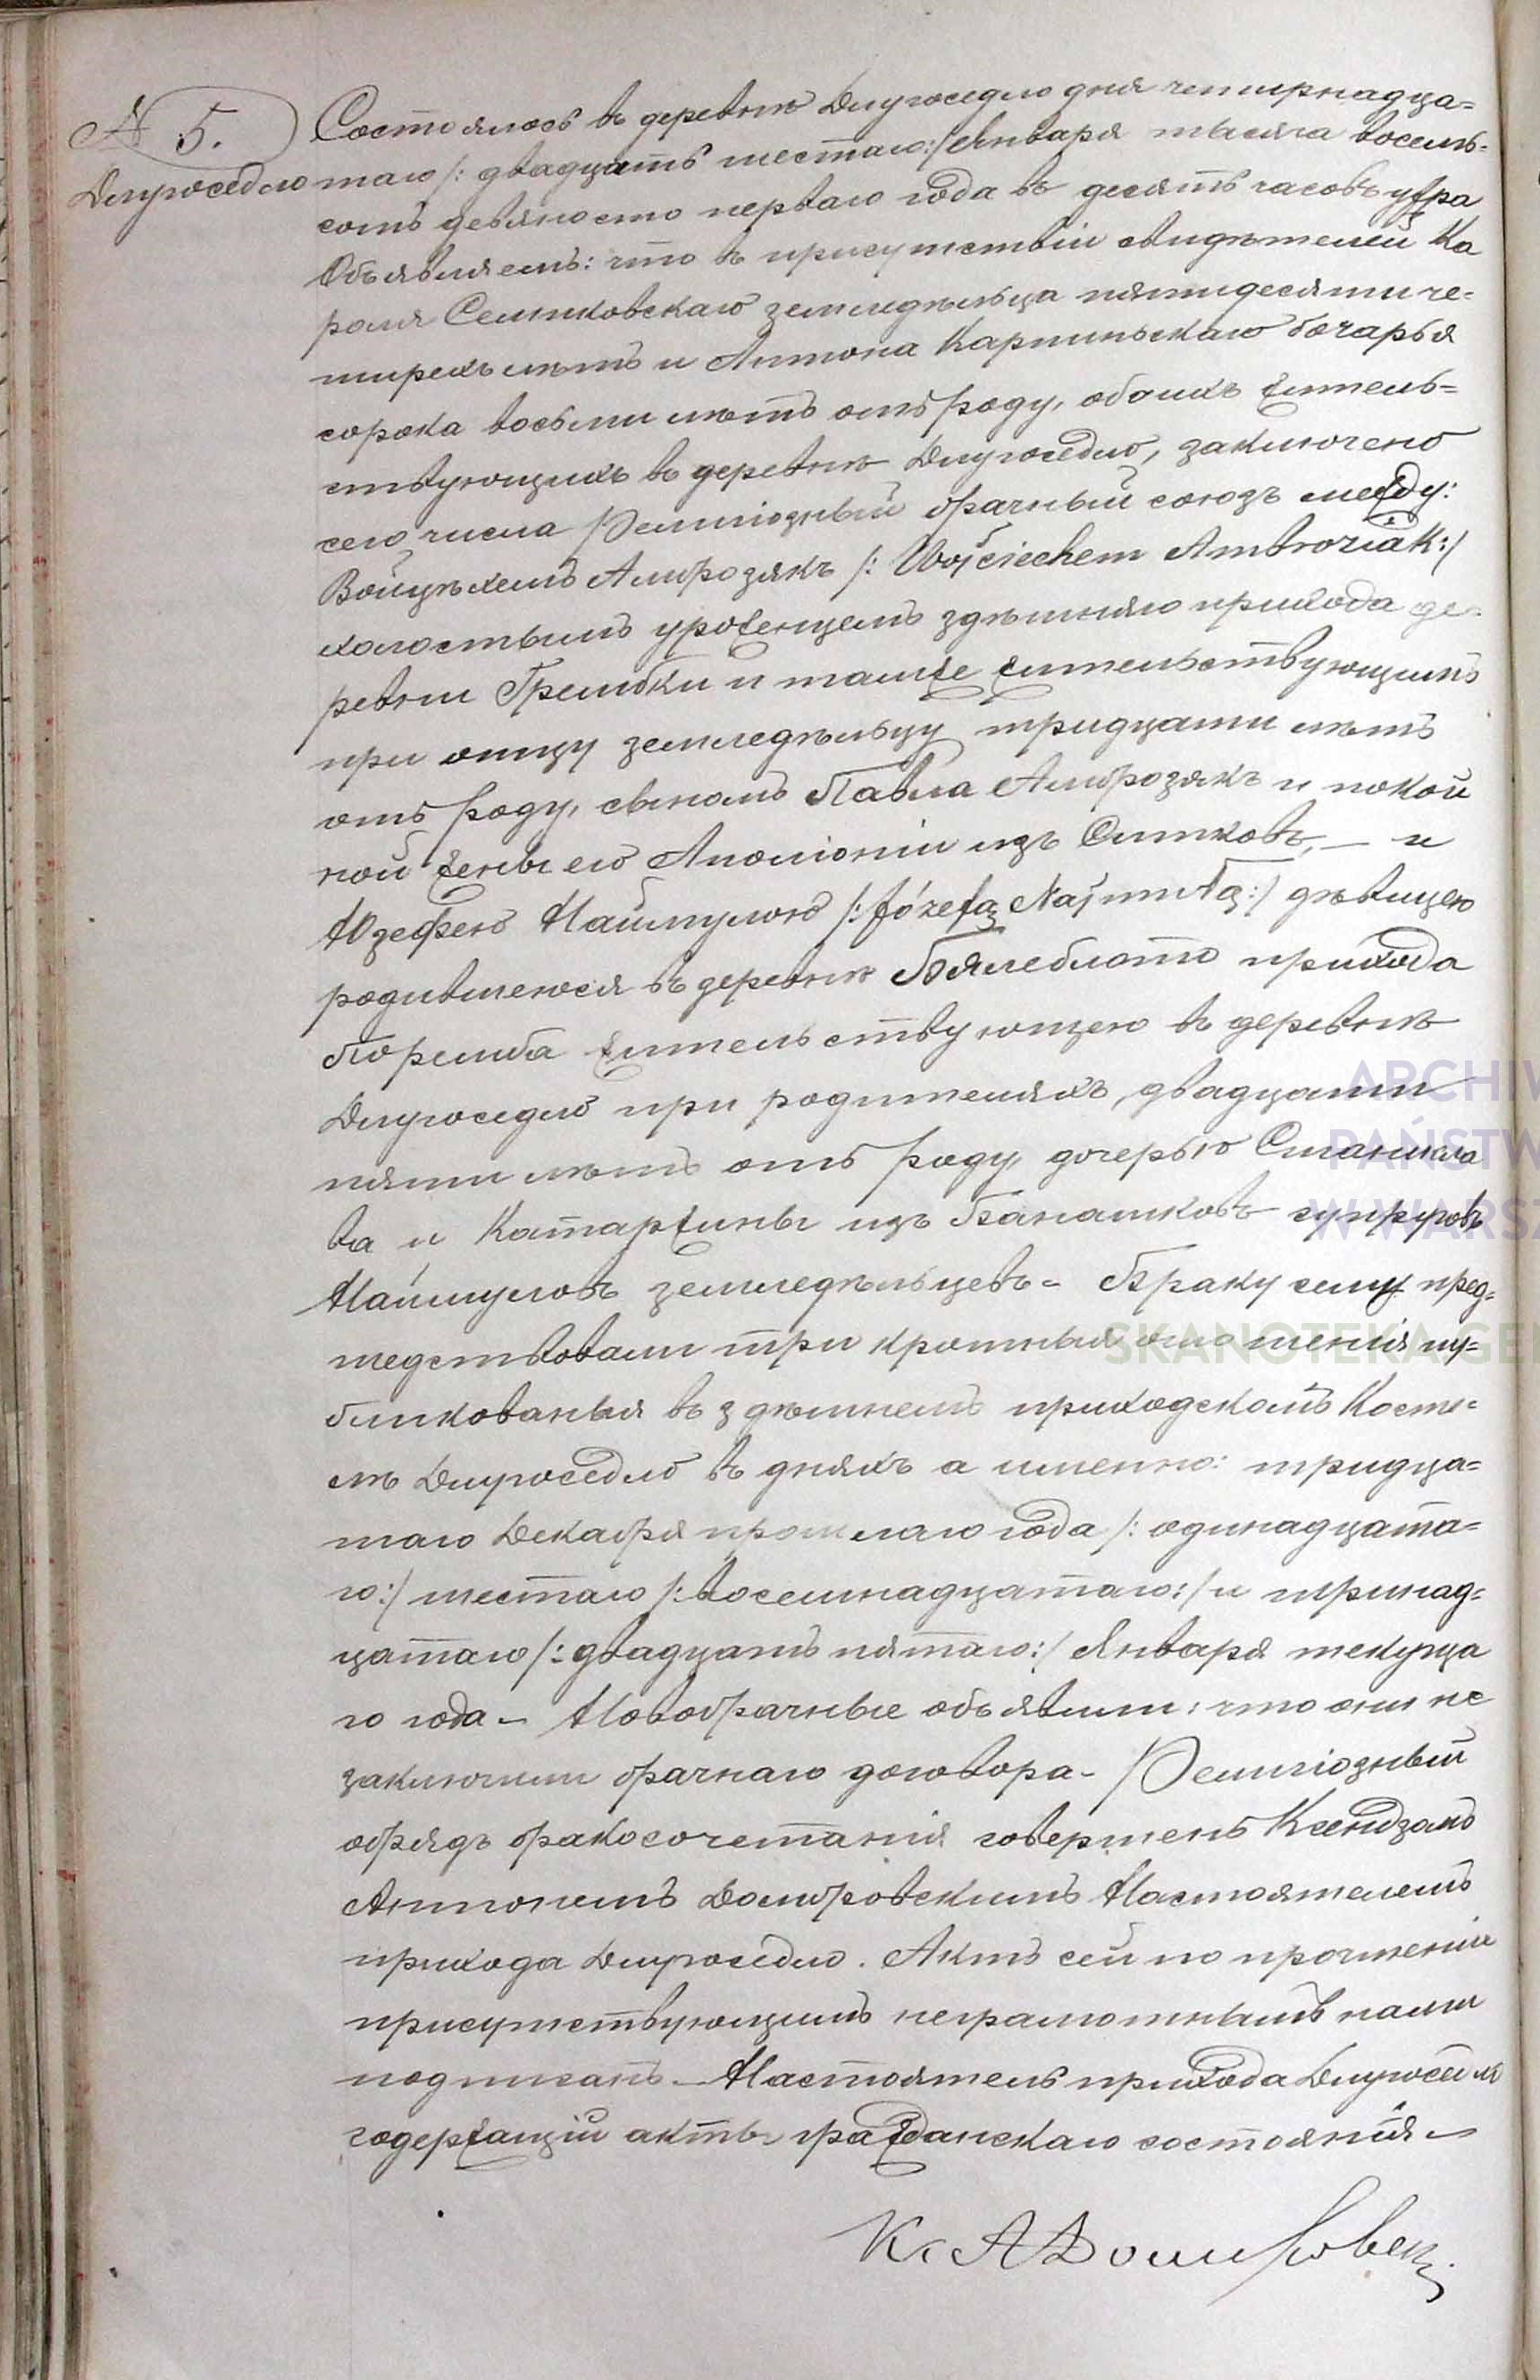 № 5.
Длугоседло
Состоялось въ деревнѣ Длугоседло дня четырнадца=
таго /: двадцать шестаго:/ Января тысяча восемь=
сотъ девяносто перваго года въ десять часовъ утра
Объявляемъ: что въ присутствіи свидѣтелей Ка
роля земледѣльца пятидесяти че=
тырехъ лѣтъ и Антона Карпиньскаго бочарья
сорока восьми лѣтъ отъ роду, обоихъ житель=
ствующихъ въ деревнѣ Длугоседло, заключено
сего числа Религіозный брачный союзъ между:
Войцѣхемъ Амброзякъ /: Wojciechem Ambroziak:/
холостымъ уроженцемъ здѣшняго прихода де=
ревни Грембки и тамже жительствующимъ
при отцу земледѣльцу тридцати лѣтъ
отъ роду, сыномъ Павла Амброзякъ и покой
ной жены его Аполіоніи изъ Ситковъ, — и
Юзефою Наймулою /: Józefą Najmułą:/ дѣвицею
родившеюся въ деревнѣ Бялеблото прихода
Поремба жительствующею въ деревнѣ
Длугоседло при родителяхъ, двадцати
пяти лѣтъ отъ роду, дочерью Станисла
ва и Катаржины изъ Банашковъ супруговъ
Наймуловъ земледѣльцевъ - Браку сему пред=
шедствовали три кротныя оглошенія пу=
бликованыя въ здѣшнемъ приходскомъ Косте=
лѣ Длугоседло въ дняхъ а именно: тридца=
таго Декабря прошлаго года /: одинадцата=
го:/ шестаго /: восемнадцатаго:/ и тринад=
цатаго /: двадцать пятаго:/ Января текуща
го года - Новобрачные объявили: что они не
заключили брачнаго договора - Религіозный
обрядъ бракосочетанія совершенъ Ксендзомъ
Антонемъ Домбровскимъ Настоятелемъ
прихода Длугоседло. Актъ сей по прочтеніи
присутствующимъ неграмотнымъ нами
подписанъ. - Настоятель прихода Длугоседло
содержащій акты гражданскаго состоянія -
Кс А Домбровск
ARCHIW
PAŃSTW
W WARSZ
SKANOTEKA GE